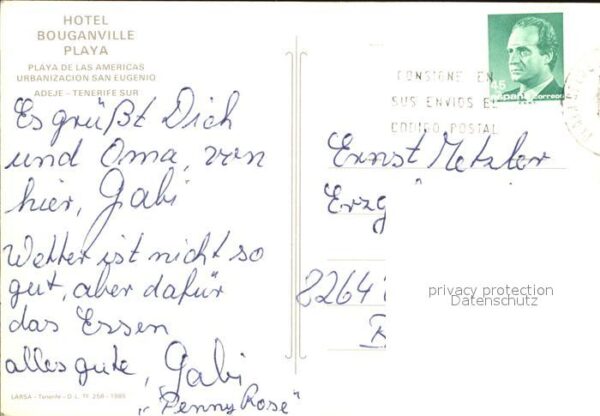 HOTEL
BOUGANVILLE
PLAYA
PLAYA DE LAS AMERICAS
URBANIZACION SAN EUGENIO
ADEJE - TENERIFE SUR
Es grüßt Dich
und Oma, von
hier, Gabi
Wetter ist nicht so
gut, aber dafür
das Essen
alles gute, Gabi
"Penny Rose"
LARSA - Tenerife - D. L. TF 256 - 1985
CONSIGNE EN
SUS ENVIOS EL
CODIGO POSTAL
45
España correos
Ernst Metzler
Erzg
8264
privacy protection
Datenschutz